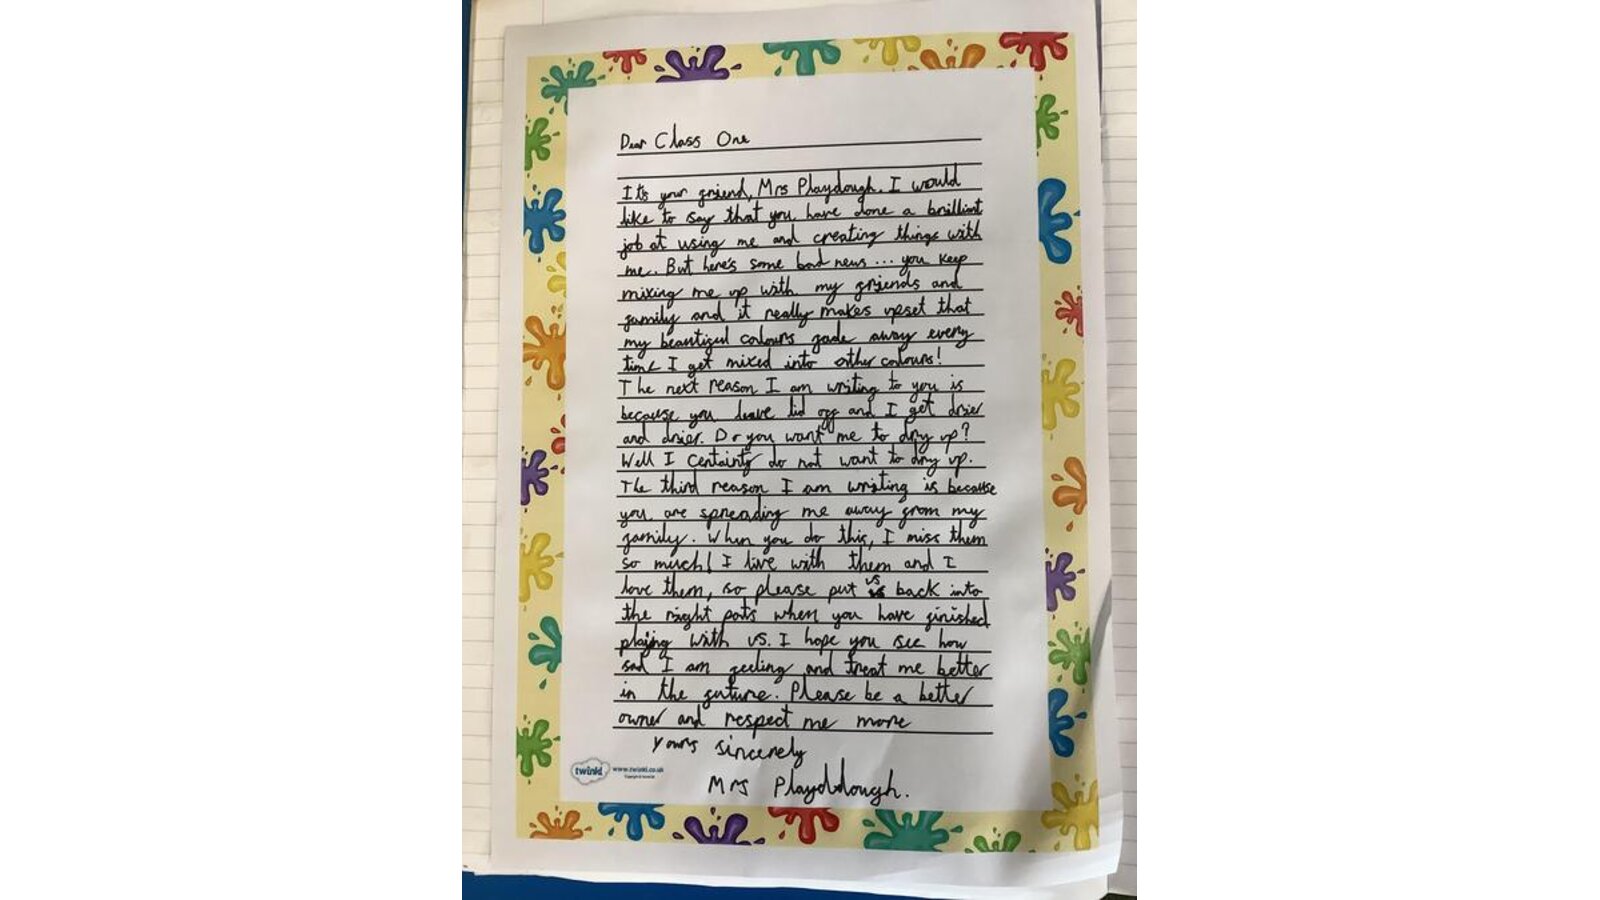 Dear Class One
It's your friend, Mrs Playdough. I would
like to say that you have done a brilliant
job at using me and creating things with
me. But here's some bad news... you keep
mixing me up with my friends and
family and it really makes upset that
my beautiful colours fade away every
time I get mixed into other colours!
The next reason I am writing to you is
because you leave lid off and I get drier
and drier. Do you want me to dry up?
Well I certainty do not want to dry up.
The third reason I am writing is because
you are spreading me away from my
family. When you do this, I miss them
so much! I live with them and I
love them, so please put us back into
the right pots when you have finished
playing with us. I hope you see how
sad I am feeling and treat me better
in the future. Please be a better
owner and respect me more
Yours sincerely
twinkl www.twinkl.co.uk
Mrs Playddough.